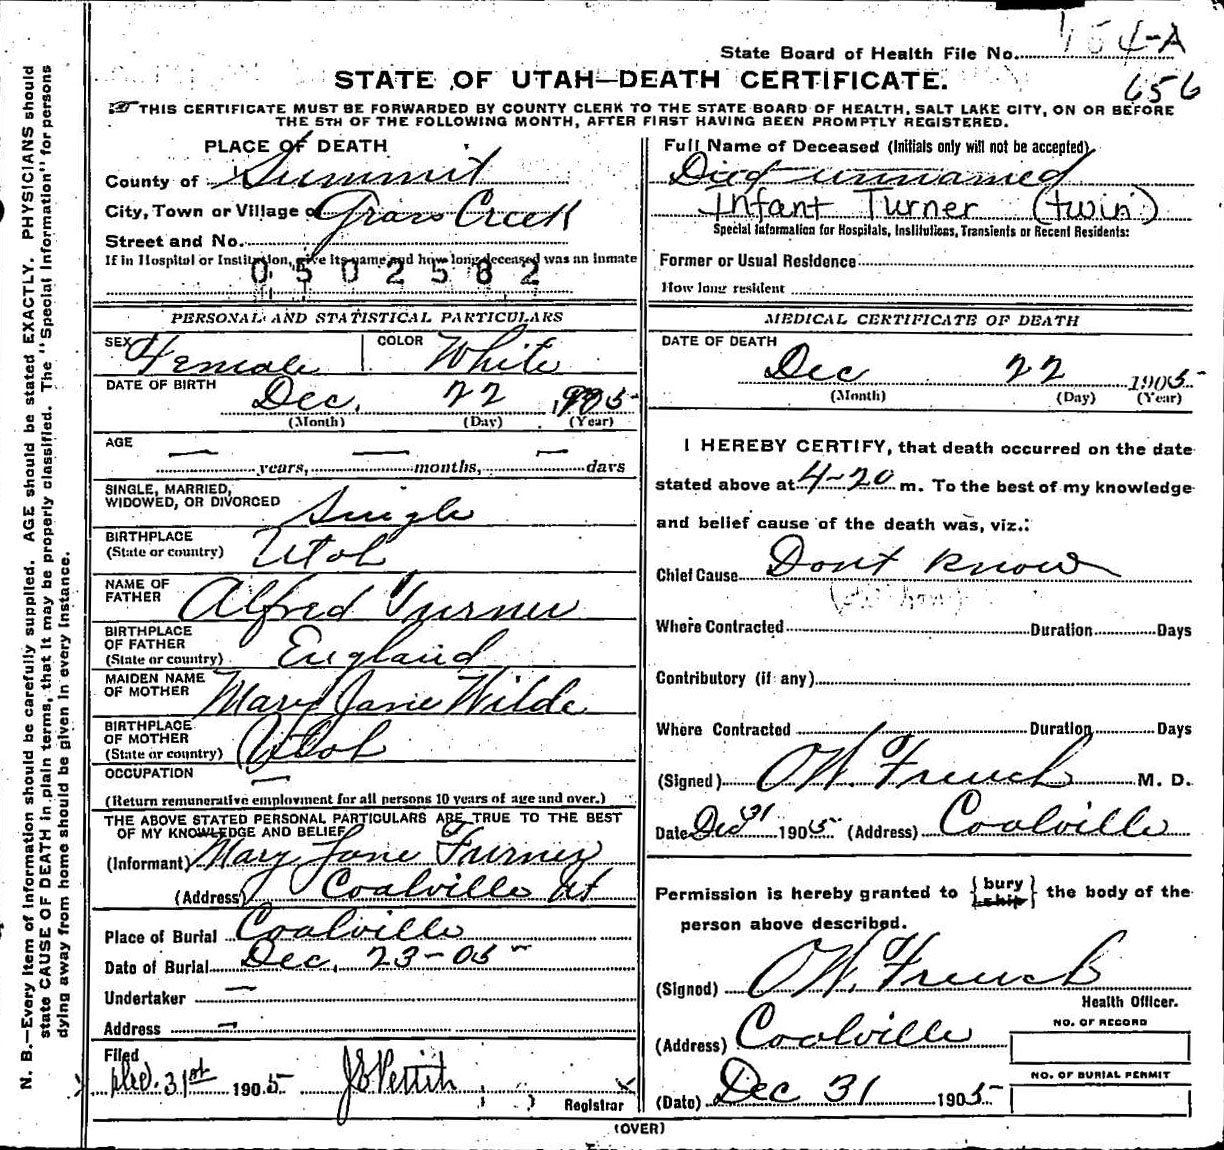 State Board of Health File No. 154-A
STATE OF UTAH—DEATH CERTIFICATE.
656
THIS CERTIFICATE MUST BE FORWARDED BY COUNTY CLERK TO THE STATE BOARD OF HEALTH, SALT LAKE CITY, ON OR BEFORE
THE 5TH OF THE FOLLOWING MONTH, AFTER FIRST HAVING BEEN PROMPTLY REGISTERED.
N. B.—Every item of information should be carefully supplied. AGE should be stated EXACTLY. PHYSICIANS should
state CAUSE OF DEATH in plain terms, that it may be properly classified. The "Special Information" for persons
dying away from home should be given in every instance.
PLACE OF DEATH
County of Summit
City, Town or Village of Grass Creek
Street and No.
If in Hospital or Institution, give its name and how long deceased was an inmate
0502582
PERSONAL AND STATISTICAL PARTICULARS
SEX Female COLOR White
DATE OF BIRTH
Dec. 22 1905
(Month) (Day) (Year)
AGE
— years, — months, — days
SINGLE, MARRIED,
WIDOWED, OR DIVORCED Single
BIRTHPLACE
(State or country) Utah
NAME OF
FATHER Alfred Turner
BIRTHPLACE
OF FATHER
(State or country) England
MAIDEN NAME
OF MOTHER Mary Jane Wilde
BIRTHPLACE
OF MOTHER
(State or country) Utah
OCCUPATION —
(Return remunerative employment for all persons 10 years of age and over.)
THE ABOVE STATED PERSONAL PARTICULARS ARE TRUE TO THE BEST
OF MY KNOWLEDGE AND BELIEF
(Informant) Mary Jane Turner
(Address) Coalville Ut
Place of Burial Coalville
Date of Burial Dec. 23-05
Undertaker —
Address —
Filed
Dec. 31st 1905 J E Pettit
Registrar
Full Name of Deceased (Initials only will not be accepted)
Died unnamed
Infant Turner (twin)
Special Information for Hospitals, Institutions, Transients or Recent Residents:
Former or Usual Residence
How long resident
MEDICAL CERTIFICATE OF DEATH
DATE OF DEATH
Dec 22 1905
(Month) (Day) (Year)
I HEREBY CERTIFY, that death occurred on the date
stated above at 4-20 m. To the best of my knowledge
and belief cause of the death was, viz.:
Chief Cause Dont know
Where Contracted Duration Days
Contributory (if any)
Where Contracted Duration Days
(Signed) O W. French M. D.
Date Dec 31 1905 (Address) Coalville
Permission is hereby granted to {bury ship} the body of the
person above described.
(Signed) O W. French
Health Officer.
(Address) Coalville
NO. OF RECORD
NO. OF BURIAL PERMIT
(Date) Dec 31 1905
(OVER)